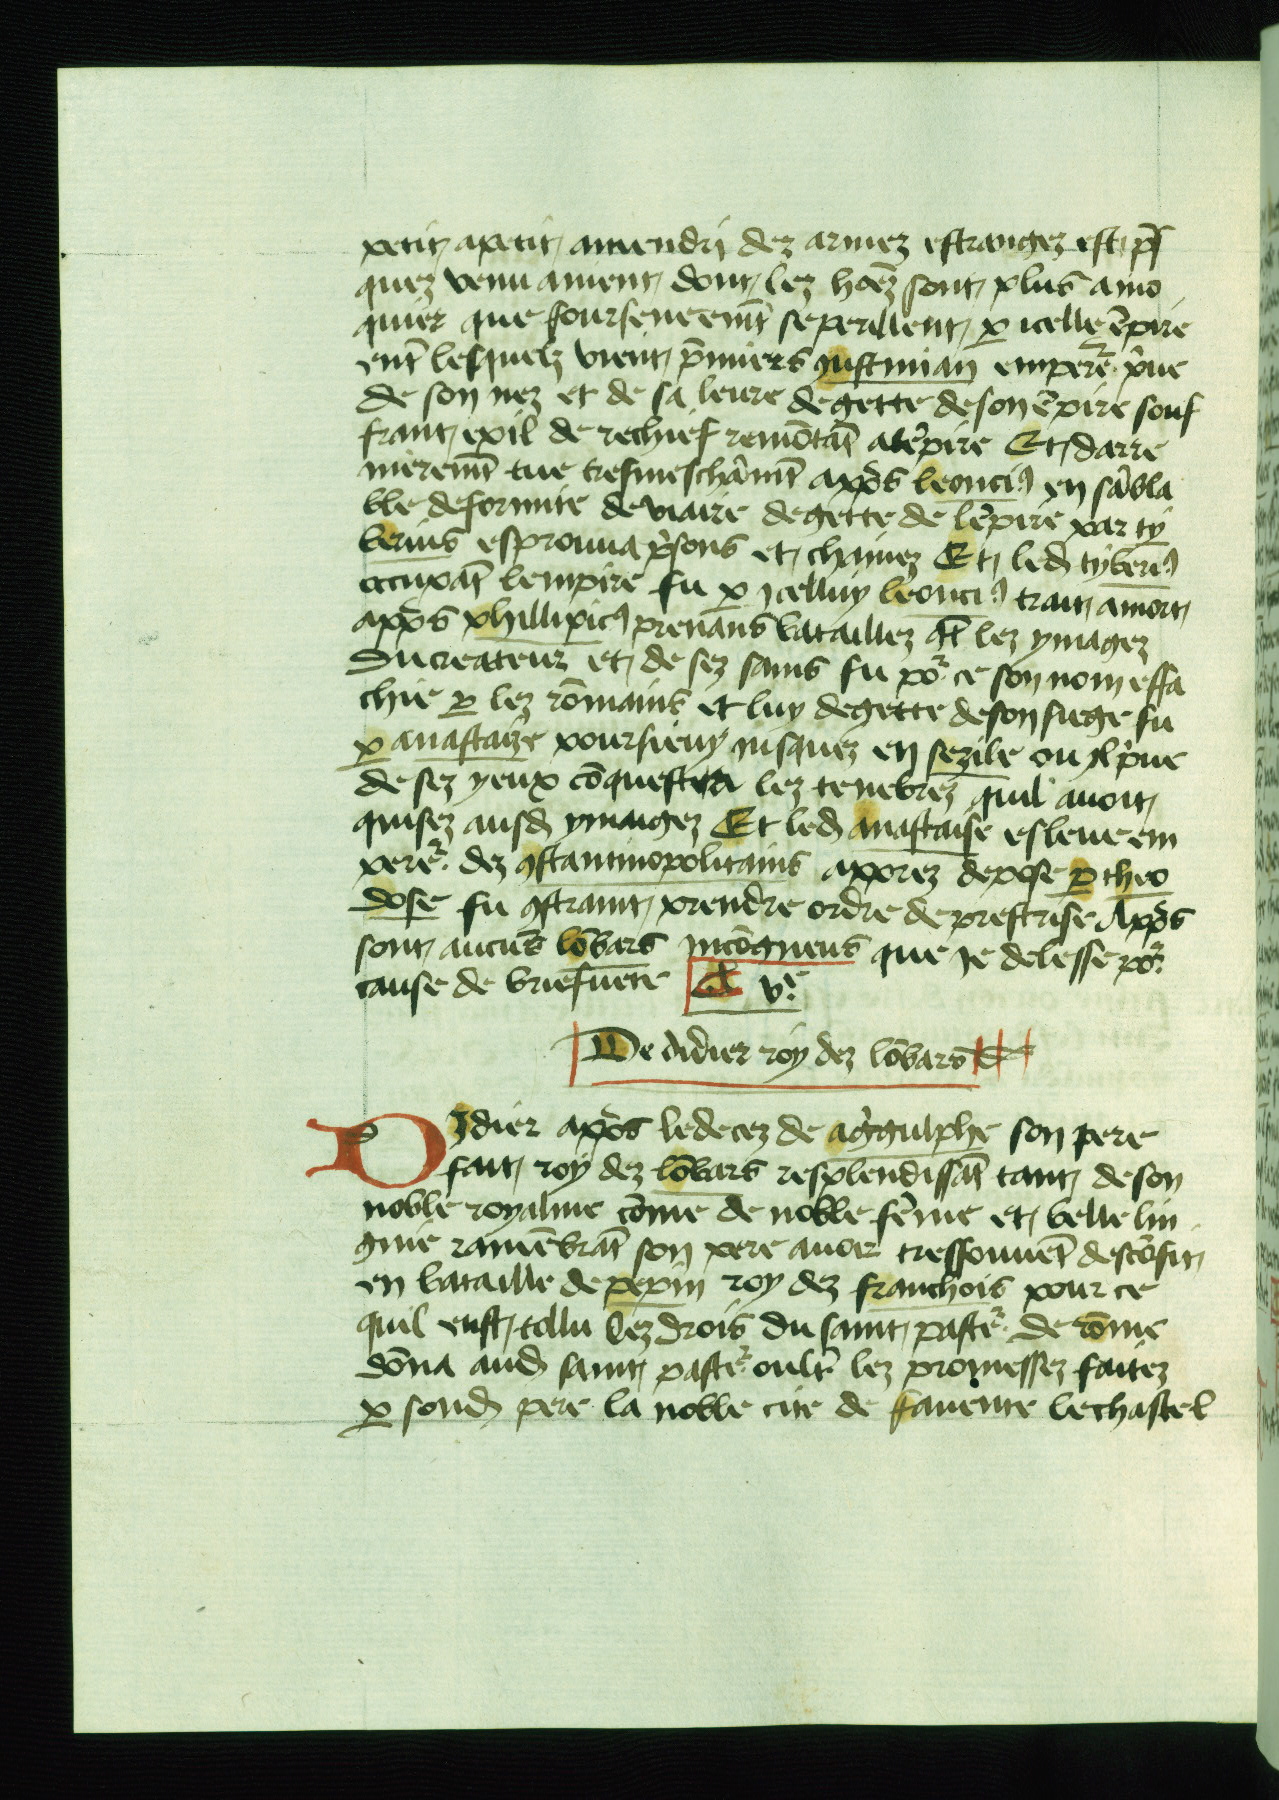 petit apetit amendri dez armez estrangez est p̃s
quez venu a nient dont lez hōez sont plus a mo
quier que fourseneemt̃ se perillent ꝑ icelle ēpire
ent̃ lesquelz vient p̃miers justinian emperer̾ p̾ue
de son nez et de sa leure degette de son ēpire souf
frant exil de rechief remōtāt a lēpire Et darre
nieremt̃ tue tresmeschāmt̃ app̾s leonciꝰ en sābla
ble deformite de viaire degette de lēpire par ty
berius esprouua p̾sons et chainez Et led̾ tyberiꝰ
occupāt lempire fu ꝑ icelluy leonciꝰ trait a mort
app̾s phillipicꝰ prenans bataillez ꝯt̃ lez ymagez
du createur et de sez sains fu po͛ ce son nom effa
chie ꝑ lez rōmains et luy degette de son siege fu
ꝑ anastaize poursieuy jusquez en sezile ou jl p̾ue
de sez yeux cōquesta lez tenebrez quil auoit
quisez ausd̾ ymaigez Et led̾ anastaise esleue em
perer̾ dez ꝯstantinopolitains apprez depose ꝑ theo
dose fu ꝯstraint prendre ordre de prestrise App̾s
sont aucūs lōbars incōgneus que je delesse po͛
cause de briefuete v.e
De didier roy dez lōbars
Didier app̾s le decez de ag̾gulphe son pere
fait roy dez lōbars resplendissāt tant de son
noble royalme cōme de noble fēme et belle lin
gnie ramēbrāt son pere auoir tressouuēt descōfit
en bataille de pepin roy dez franchois pour ce
quil eust tollu lez drois du saint paster̾ de rōme
dōna aud̾ saint paster̾ oultr̾ lez promessez faitez
ꝑ sond̾ pere la noble cite de fauence le chastel